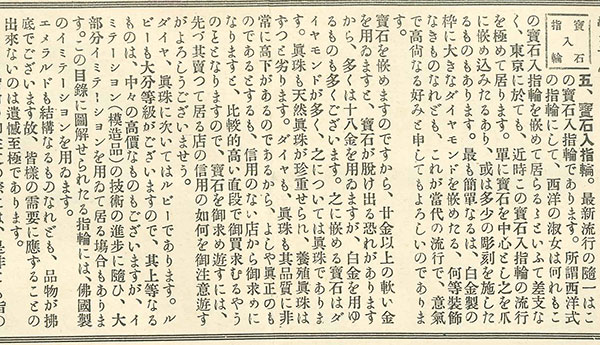 寶石入指輪
五、寶石入指輪。最新流行の隨一はこ
の寶石入指輪であります。所謂西洋式
の指輪にして、西洋の淑女は何れもこ
の寶石入指輪を嵌めて居らるゝといふて差支な
く、東京に於ても、近時この寶石入指輪の流行
を極めて居ります。單に寶石を中心とし之を爪
に嵌め込みたるあり、或は多少の彫刻を施した
るものもあります。最も簡單なるは、白金製の
枠に大きなダイヤモンドを嵌めたる、何等裝飾
なきものなれども、これが當代の流行で、意氣
で高尚なる好みと申してもよろしいのでありま
寶石を嵌めますのですから、廿金以上の軟い金
を用ゐますと、寶石が脱け出る恐れがあります
から、多くは十八金を用ゐますが、白金を用ゆ
るものも多くございます。之に嵌める寶石はダ
イヤモンドが多く、之については眞珠でありま
す。眞珠も天然眞珠が珍重せられ、養殖眞珠は
ずつと劣ります。ダイヤも、眞珠も其品質に非
常に高下があるのであるから、よしや眞正のも
のであるとするも、信用のない店から御求めに
なりますと、比較的高い直段で御買求むるやう
のことゝなりますので、寶石を御求め遊すには、
先づ其賣つて居る店の信用の如何を御注意遊す
がよろしうございませう。
ダイヤ、眞珠に次いではルビーであります。ル
ビーも大分等級がございますので、其上等なる
ものは、中々の高價なものもございますが、イ
ミテーション(模造品)の技術の進步に隨ひ、大
部分イミテーションを用ゐて居る場合もありま
す。この目錄に圖解せられたる指輪には、佛國製
のイミテーションを用ゐます。
エメラルドも結構なるものなれども、品物が拂
底でございます故、皆樣の需要に應ずることの
出來ないのは遺憾至極であります。